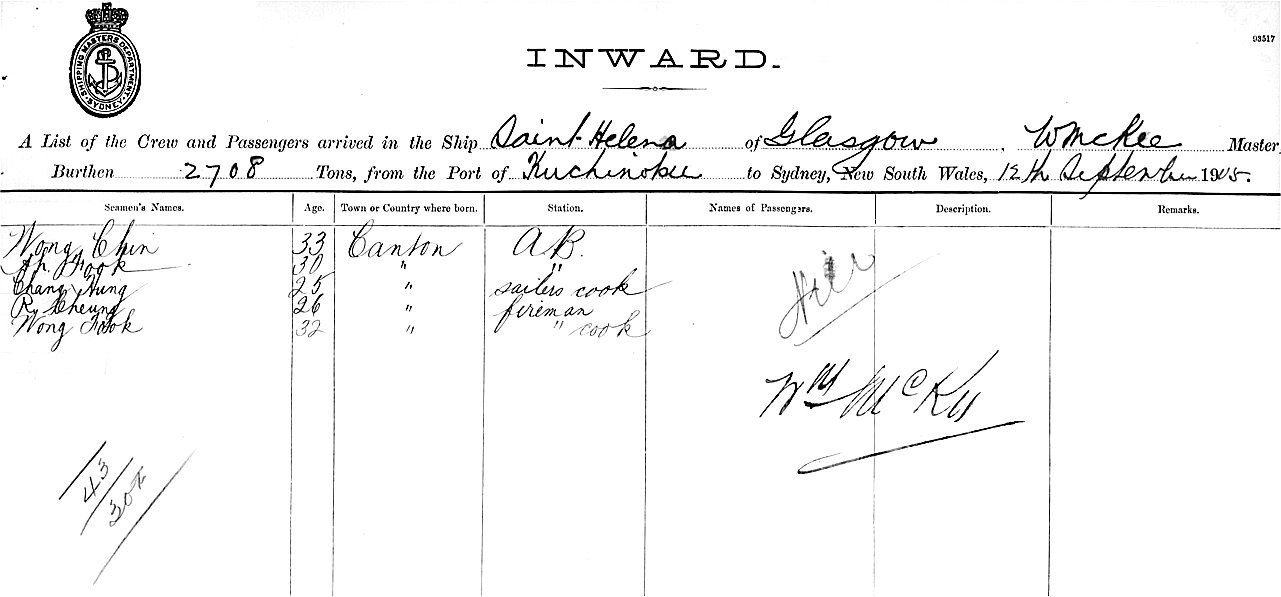 SHIPPING MASTERS DEPARTMENT. SYDNEY.
93517
INWARD.
A List of the Crew and Passengers arrived in the Ship Saint Helena of Glasgow, W McKee Master
Burthen 2708 Tons, from the Port of Kuchinotsu to Sydney, New South Wales, 12th September 1905.
Seamen's Names. Age. Town or Country where born. Station. Names of Passengers. Description. Remarks.
Wong Chin 33 Canton AB.
Ah Fook 30 " "
Chang Hung 25 " sailors cook
Cheung 26 " fireman
Wong Fook 32 " " cook
Wm McKee
43
30